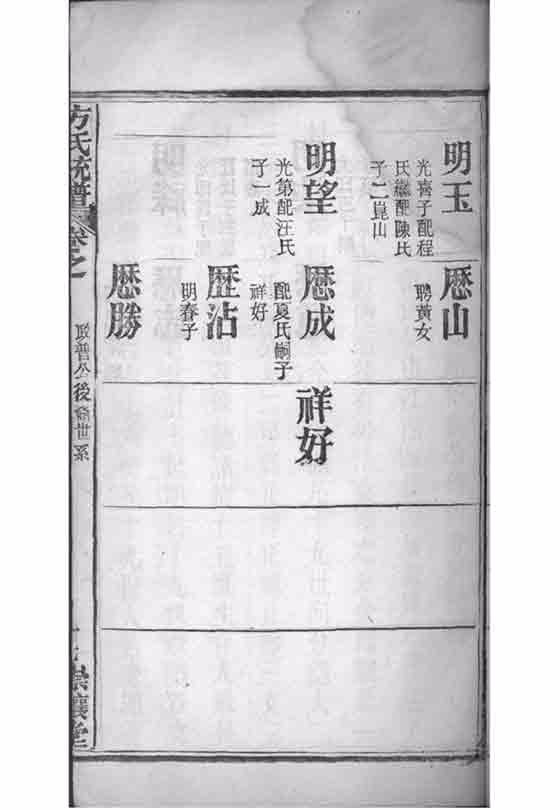 明玉
光喬子配程
氏繼配陳氏
子二崑山
歷山
聘黃女
明望
光第配汪氏
子一成
歷成
配夏氏嗣子
祥好
祥好
歷沾
明春子
歷勝
方氏統譜
卷之
後裔世系
崇讓堂